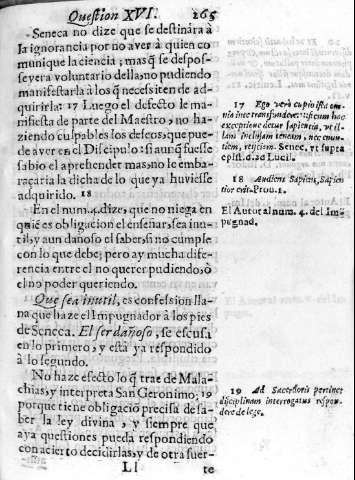 Question XVI. 265
Seneca no dize que se destinára à
la ignorancia por no aver à quien co
munique la ciencia; mas q̃ se despos-
seyera voluntario della, no pudiendo
manifestarla à los q̃ necessiten de ad-
quirirla: 17 Luego el defecto le ma-
nifiesta de parte del Maestro, no ha-
ziendo culpables los deseos, que pue-
de aver en el Discipulo: si aunq̃ fuesse
sabio el aprehender mas, no le emba-
raçaria la dicha de lo que ya huviesse
adquirido. 18
En el num. 4. dize, que no niega en
quiẽ es obligacion el enseñar, sea inu-
til, y aun dañoso el saber, si no cumple
con lo que debe; pero ay mucha dife-
rencia entre el no querer pudiendo, ò
el no poder queriendo.
Que sea inutil, es confession lla-
na que haze el Impugnador à los pies
de Seneca. El ser dañoso, se escusa
en lo primero, y està ya respondido
à lo segundo.
No haze efecto lo q̃ trae de Mala-
chias, y interpreta San Geronimo; 19
porque tiene obligaciõ precisa de sa-
ber la ley divina, y siempre que
aya questiones pueda respondiendo
con acierto decidirlas, y de otra suer-
Ll te
17 Ego verò cupio ista om-
nia in te transfundere: si cum hac
exceptione detur sapientia, ut il-
lam inclusam teneam, nec enun-
tiem, reijciam. Senec. ut supra
epist. 6. ad Lucil.
18 Audiens Sapiens, Sapien
tior erit. Prou. 1.
El Autor al num. 4. del Im-
pugnad.
19 Ad Sacerdotis pertinet
disciplinam interrogatus respon-
dere de lege.